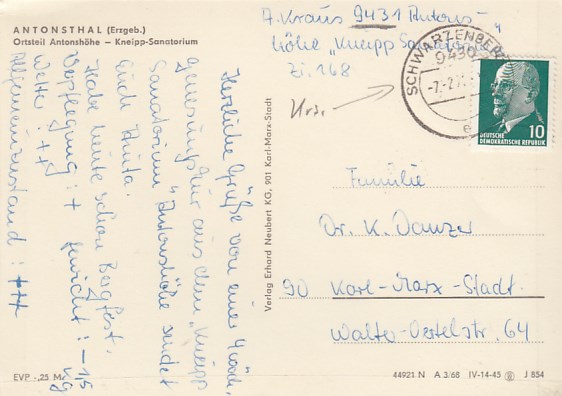 ANTONSTHAL (Erzgeb.)
Ortsteil Antonshöhe – Kneipp-Sanatorium
A. Kraus 9431 Antons-
höhe „Kneipp Sanatorium"
Zi. 168
SCHWARZENBERG
9430
-7.-2.
e
10
DEUTSCHE
DEMOKRATISCHE REPUBLIK
Herzliche Grüße von einer 4 wöch.
Genesungskur aus dem „Kneipp
Sanatorium" Antonshöhe sendet
Euch Anita.
Habe heute schon Bergfest.
Verpflegung: + Gewicht: -1,5 kg
Wetter: ++
Allgemeinzustand: +++
Verlag Erhard Neubert KG, 901 Karl-Marx-Stadt
Familie
Dr. K. Danzer
90 Karl-Marx-Stadt
Walter-Oertelstr. 64
EVP -,25 M
44921 N A 3/68 IV-14-45 J 854